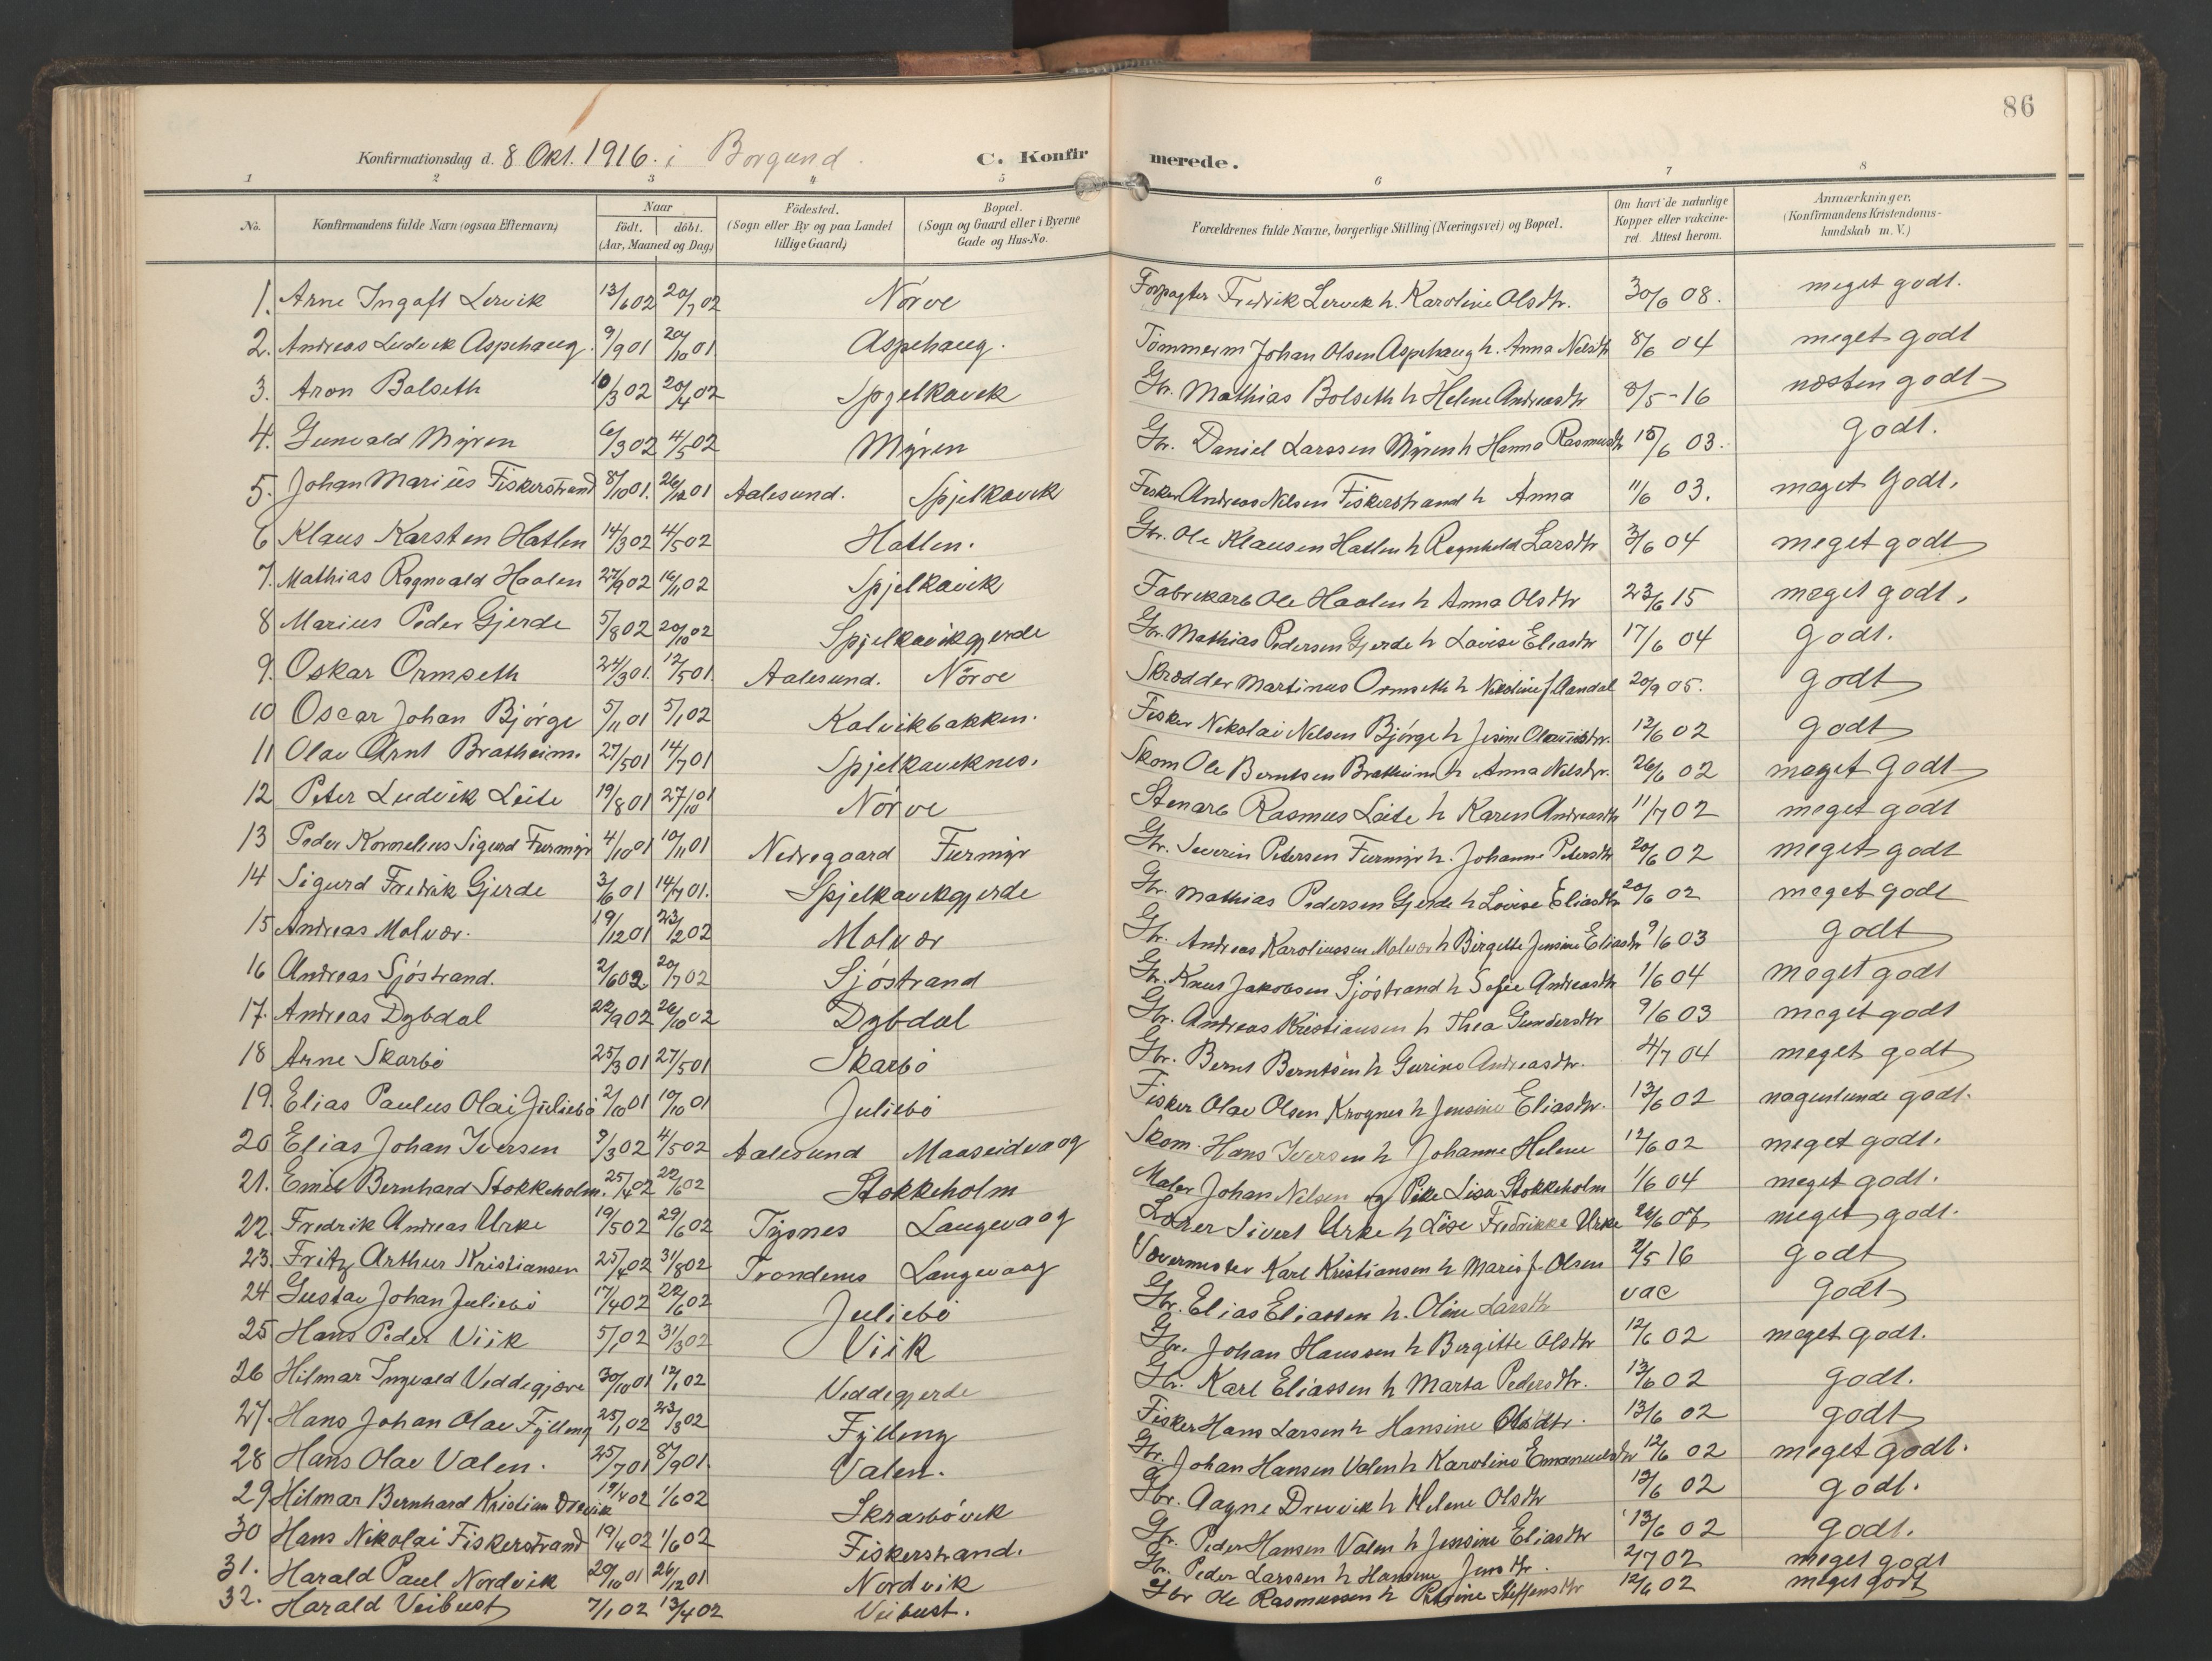 86
Konfirmationsdag d. 8 Okt. 1916. i Borgund. C. Konfirmerede.
1 2 3 4 5 6 7 8
No. Konfirmandens fulde Navn (ogsaa Efternavn) Naar födt. döbt. (Aar, Maaned og Dag) Födested. (Sogn eller By og paa Landet tillige Gaard) Bopæl. (Sogn og Gaard eller i Byerne Gade og Hus-No. Forældrenes fulde Navne, borgerlige Stilling (Næringsvei) og Bopæl. Om havt de naturlige Kopper eller vakcineret. Attest herom. Anmærkninger. (Konfirmandens Kristendomskundskab m. V.)
1. Arne Ingolf Lervik 13/6 02 20/7 02 Nörve Forpagter Fredrik Lervik h. Karoline Olsdtr. 30/6 08. meget godt.
2. Andreas Ludvik Aspehaug. 9/9 01 20/10 01 Aspehaug. Tömmerm Johan Olsen Aspehaug h. Anna Nilsdtr 8/6 04 meget godt
3. Aron Bolseth 10/3 02 20/4 02 Spjelkavik Gbr. Mathias Bolseth h Helene Andreasdtr 8/5-16 næsten godt
4. Gunvald Myren 6/3 02 4/5 02 Myren Gbr. Daniel Larssen Myren h Hanna Rasmusdtr 15/6 03. Godt.
5. Johan Marius Fiskerstrand 8/10 01. 26/12 01 Aalesund. Spjelkavik Fisker Andreas Nilsen Fiskerstrand h Anna 11/6 03. meget Godt.
6 Klaus Karsten Hatlen 14/3 02 4/5 02 Hatlen. Gbr. Ole Klausen Hatlen h Regnhild Larsdtr 3/6 04 meget godt
7. Mathias Ragnvald Haalen 27/9 02 16/11 02 Spjelkavik Fabrikarb Ole Haalen h Anna Olsdtr 23/6 15 meget godt.
8 Marius Peder Gjerde 5/8 02 20/10 02 Spjelkavikgjerde Gbr. Mathias Pedersen Gjerde h Lovise Eliasdtr 17/6 04 Godt.
9. Oskar Ormseth 24/3 01. 12/5 01. Aalesund. Nörve Skrædder Martinus Ormseth h Nikoline f Aandal 20/9 05. Godt
10 Oscar Johan Bjørge 5/11 01 5/1 02 Kalvikbakken. Fisker Nikolai Nilsen Bjørge h Jesine 12/6 02 Godt
11 Olav Arnt Bratheim. 27/5 01 14/7 01 Spjelkaviknes. Skom Ole Berntsen Bratheim h Anna Nilsdtr. 26/6 02 meget Godt
12 Peter Ludvik Leite 19/8 01 27/10 01 Nörve Stenarb Rasmus Leite h Karen Andreasdtr 11/7 02 meget godt
13 Peder Kornelius Sigurd Furmyr 4/10 01 10/11 01 Nedregaard Furmyr Gbr. Severin Petersen Furmyr h. Johanne Petersdtr 20/6 02 meget godt
14 Sigurd Fredrik Gjerde 3/6 01 14/7 01. Spjelkavikgjerde Gbr. Mathias Pedersen Gjerde h Lovise Eliasdtr 20/6 02 meget godt
15 Andreas Molvær. 19/12 01 23/2 02 Molvær Gbr. Andreas Karoliussen Molvær h Birgitte Jensine Eliasdtr 9/6 03 Godt
16 Andreas Sjöstrand. 2/6 02 20/7 02 Sjöstrand Gbr. Knut Jakobsen Sjöstrand h Sofie Andreasdtr 1/6 04 Meget godt
17. Andreas Dybdal 22/9 02 26/10 02 Dybdal Gbr. Andreas Kristiansen h Thea Gundersdtr 9/6 03 meget godt
18 Arne Skarbö 25/3 01 27/5 01 Skarbö Gbr. Bernt Berntsen h Gurine Andreasdtr. 4/7 04 meget godt
19. Elias Paulus Olai Juliebö 2/10 01 19/10 01 Juliebö Fisker Olav Olsen Krognes h Jensine Eliasdtr. 13/6 02 nogenlunde godt.
20 Elias Johan Iversen 9/3 02 4/5 02 Aalesund Maaseidvaag Skom. Hans Iversen h Johanne Helene 12/6 02 meget godt.
21. Emil Bernhard Stokkeholm. 25/4 02 22/6 02 Stokkeholm Maler Johan Nilsen og Pike Lisa Stokkeholm 1/6 04 meget godt.
22. Fredrik Andreas Urke 19/5 02 29/6 02 Tysnes Langevaag Lærer Sivert Urke h Lise Fredrikke Urke 26/6 07 meget godt.
23. Fritz Arthur Kristiansen 25/4 02 31/8 02 Trondenes Langevaag Vævermester Karl Kristiansen h Marie f. Olsen 2/5 16 Godt
24 Gustav Johan Juliebö 17/4 02 22/6 02 Juliebö Gbr. Elias Eliassen h. Oline Larsdtr vac Godt
25 Hans Peder Viik 5/1 02 31/3 02 Viik Gbr. Johan Hanssen h Birgitte Olsdtr 12/6 02 meget godt.
26 Hilmar Ingvald Veddegjære 30/10 01 12/1 02 Veddegjerde Gbr. Karl Eliassen h Marta Pedersdtr. 13/6 02 Godt.
27. Hans Johan Olav Fylling 25/1 02 23/3 02 Fylling Fisker Hans Larsen h Hansine Olsdtr. 13/6 02 Godt
28 Hans Olav Valen. 25/7 01 8/9 01. Valen. Gbr. Johan Hansen Valen h Karoline Emanuelsdtr 12/6 02 meget godt.
29 Hilmar Bernhard Kristian Drevik 12/4 02 1/6 02 Skrarbövik Gbr. Aagne Drevik h Helene Olsdtr 12/6 02 Godt.
30 Hans Nikolai Fiskerstrand 19/4 02 1/6 02 Fiskerstrand. Gbr. Peder Hansen Valen h Jensine Eliasdtr 13/6 02 Godt.
31. Harald Paul Nordvik 29/10 01 26/12 01 Nordvik Gbr. Peder Larssen h Hansine Jensdtr. 2/7 02 meget godt
32. Harald Veibust 7/1 02 13/4 02 Veibust. Gbr Ole Rasmussen h Petrine Steffensdtr 12/6 02 meget godt